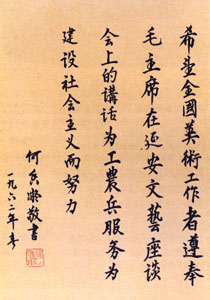 希望全國美術工作者遵奉
毛主席在延安文藝座谈
会上的講话为工農兵服务为
建设社会主义而努力
何香凝敬書
一九六二年春